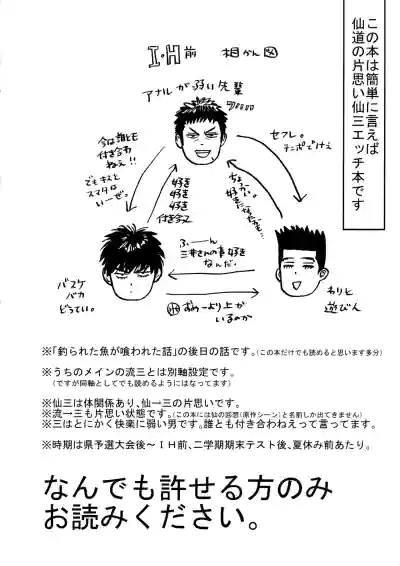 この本は簡単に言えば
仙道の片思い仙三エッチ本です
I・H前 相かん図
アナルが弱い先輩
今は誰とも
付き合わ
ねぇ!!
でもキスと
スマタなら
いーぜ。
好き
好き
好き
付き合え
セフレ。
チンポでけぇ
ちょろい。
好きになったかも…
ふーーん
三井さんの事好き
なんだ。
バスケ
バカ
どうてい。
おめーより上が
いるのか
わりと
遊びん
※「釣られた魚が喰われた話」の後日の話です。(この本だけでも読めると思います多分)
※うちのメインの流三とは別軸設定です。
(ですが同軸としてでも読めるようにはなってます)
※仙三は体関係あり、仙→三の片思いです。
※流→三も片思い状態です。(この本には仙の回想(原作シーン)と名前しか出てきません)
※三はとにかく快楽に弱い男です。誰とも付き合わねえって言ってます。
※時期は県予選大会後~IH前、二学期期末テスト後、夏休み前あたり。
なんでも許せる方のみ
お読みください。